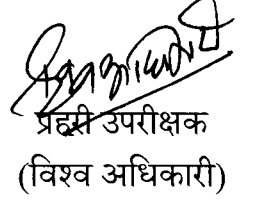 प्रहरी उपरीक्षक
(विश्व अधिकारी)